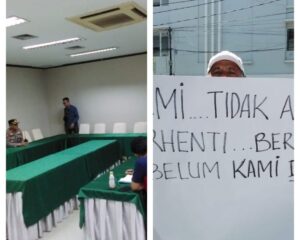 MI....TIDAK A
RHENTI...BER
BELUM KAMI D